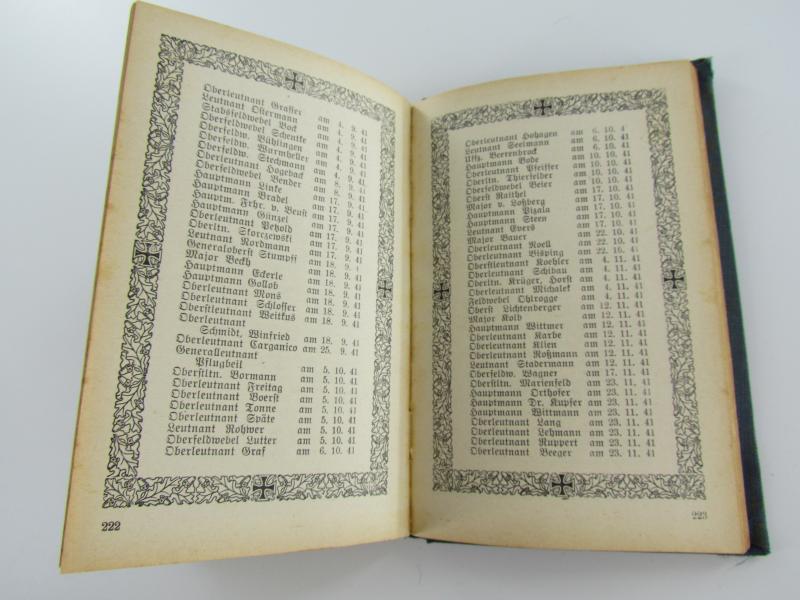 Oberleutnant Grasser am 4. 9. 41
Leutnant Ostermann am 4. 9. 41
Stabsfeldwebel Bock am 4. 9. 41
Oberfeldwebel Schentke am 4. 9. 41
Oberfeldw. Bühlingen am 4. 9. 41
Oberfeldw. Wurmheller am 4. 9. 41
Oberfeldw. Stechmann am 4. 9. 41
Oberleutnant Hogeback am 8. 9. 41
Oberfeldwebel Bender am 8. 9. 41
Hauptmann Linke am 17. 9. 41
Hauptmann Bradel am 17. 9. 41
Hauptm. Frhr. v. Beust am 17. 9. 41
Hauptmann Günzel am 17. 9. 41
Oberleutnant Petzold am 17. 9. 41
Oberltn. Storczewski am 17. 9. 41
Leutnant Nordmann am 17. 9. 41
Generaloberst Stumpff am 18. 9. 4
Major Beckh am 18. 9.
Hauptmann Eckerle am 18. 9. 41
Hauptmann Gollob am 18. 9. 41
Oberleutnant Mons am 18. 9. 41
Oberleutnant Schlosser am 18. 9. 41
Oberstleutnant Weitkus am 18. 9. 41
Oberleutnant
Schmidt, Winfried am 18. 9. 41
Oberleutnant Carganico am 25. 9. 41
Generalleutnant
Pflugbeil am 5. 10. 41
Oberstltn. Bormann am 5. 10. 41
Oberleutnant Freitag am 5. 10. 41
Oberleutnant Woerst am 5. 10. 41
Oberleutnant Tonne am 5. 10. 41
Oberleutnant Späte am 5. 10. 41
Leutnant Rohwer am 5. 10. 41
Oberfeldwebel Lutter am 5. 10. 41
Oberleutnant Graf am 6. 10. 41
222
Oberleutnant Hohagen am 6. 10. 4
Leutnant Seelmann am 6. 10. 41
Uffz. Beerenbrock am 6. 10. 41
Hauptmann Bode am 10. 10. 41
Oberleutnant Pfeiffer am 10. 10. 41
Oberltn. Thierfelder am 10. 10. 41
Oberfeldwebel Beier am 10. 10. 41
Oberst Raithel am 17. 10. 41
Major v. Loßberg am 17. 10. 41
Hauptmann Pizala am 17. 10. 41
Hauptmann Steen am 17. 10. 41
Leutnant Evers am 17. 10. 41
Major Bauer am 22. 10. 41
Oberleutnant Roell am 22. 10. 41
Oberleutnant Bisping am 22. 10. 41
Oberstleutnant Koehler am 4. 11. 41
Oberleutnant Schibau am 4. 11. 41
Oberltn. Krüger, Horst am 4. 11. 41
Oberleutnant Michalek am 4. 11. 41
Feldwebel Ohlrogge am 4. 11. 41
Oberst Lichtenberger am 12. 11. 41
Major Kolb am 12. 11. 41
Hauptmann Wittmer am 12. 11. 41
Oberleutnant Karbe am 12. 11. 41
Oberleutnant Klien am 12. 11. 41
Oberleutnant Roßmann am 12. 11. 41
Leutnant Stadermann am 12. 11. 41
Oberfeldw. Wagner am 17. 11. 41
Oberstltn. Marienfeld am 23. 11. 41
Hauptmann Orthofer am 23. 11. 41
Hauptmann Dr. Kupfer am 23. 11. 41
Hauptmann Wittmann am 23. 11. 41
Oberleutnant Lang am 23. 11. 41
Oberleutnant Lehmann am 23. 11. 41
Oberleutnant Ruppert am 23. 11. 41
Oberleutnant Beeger am 23. 11. 41
223